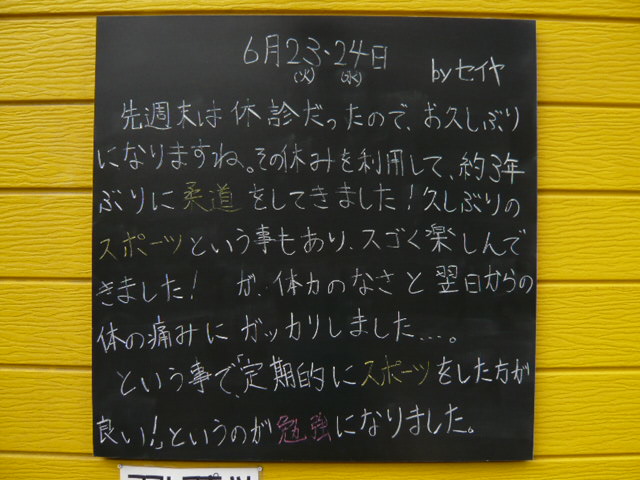 6月23・24日
(火) (水)
byセイヤ
先週末は休診だったので、お久しぶり
になりますね。その休みを利用して、約3年
ぶりに柔道をしてきました！久しぶりの
スポーツという事もあり、スゴく楽しんで
きました！ が、体力のなさと翌日からの
体の痛みにガッカリしました…。
という事で、「定期的にスポーツをした方が
良い！」というのが勉強になりました。